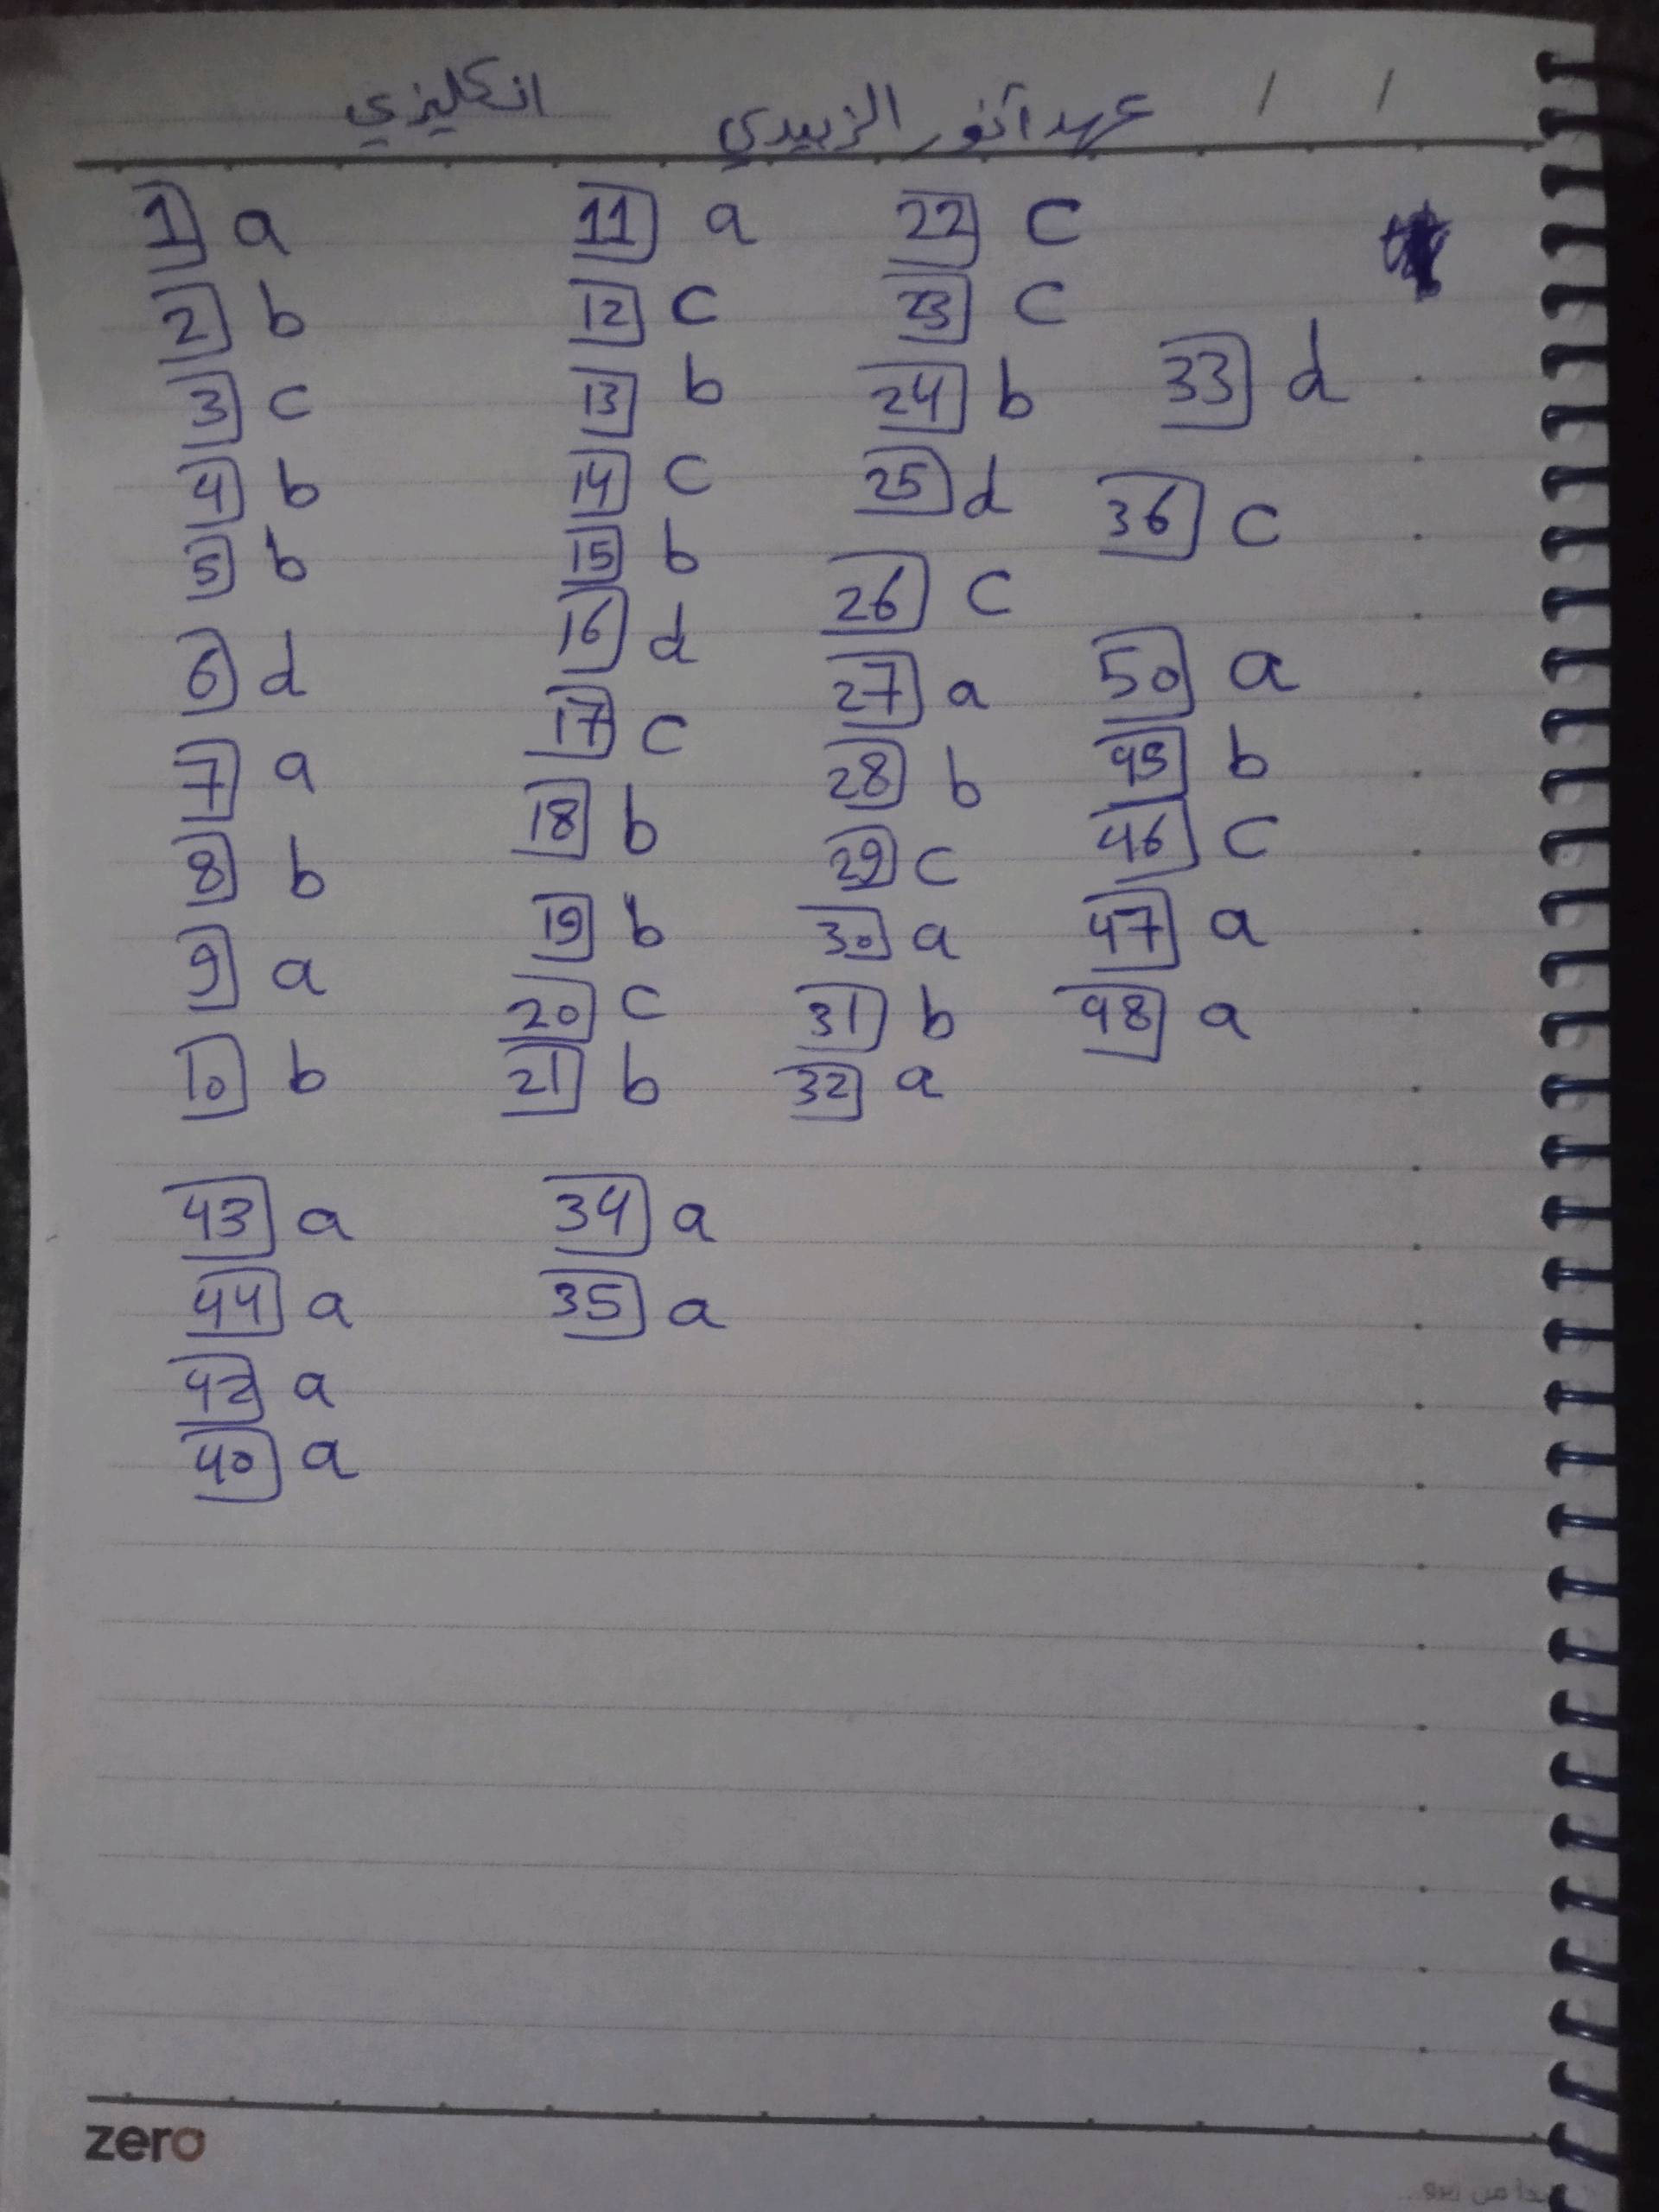 عهد أنور الزبيدي انكليزي
1 a 11 a 22 c
2 b 12 c 23 c
3 c 13 b 24 b 33 d
4 b 14 c 25 d 36 c
5 b 15 b 26 c
6 d 16 d 27 a 50 a
7 a 17 c 28 b 45 b
8 b 18 b 29 c 46 c
9 a 19 b 30 a 47 a
20 c 31 b 48 a
10 b 21 b 32 a
43 a 34 a
44 a 35 a
42 a
40 a
zero